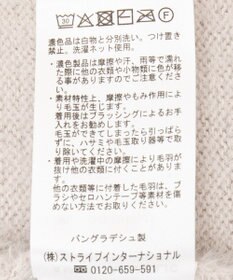 30
F
濃色品は白物と分別洗い。つけ置き
禁止、洗濯ネット使用。
・濃色製品は摩擦や汗、雨等で濡れ
た際に他の衣類や小物類に色が移
る事がありますのでご注意くださ
い。
・素材特性上、摩擦やもみ作用によ
り毛玉ができます。
着用後はブラッシングによるお手
入れをお勧めします。
毛玉ができてしまったら引っぱら
ずに、ハサミや毛玉取り器等で取
り除いてください。
・着用や洗濯中の摩擦により毛羽が
抜け他の衣類等に付着することが
あります。
他の衣類等に付着した毛羽は、ブ
ラシやセロハンテープ等素材に合
わせてご使用ください。
バングラデシュ製
(株)ストライプインターナショナル
☎ 0120-659-591